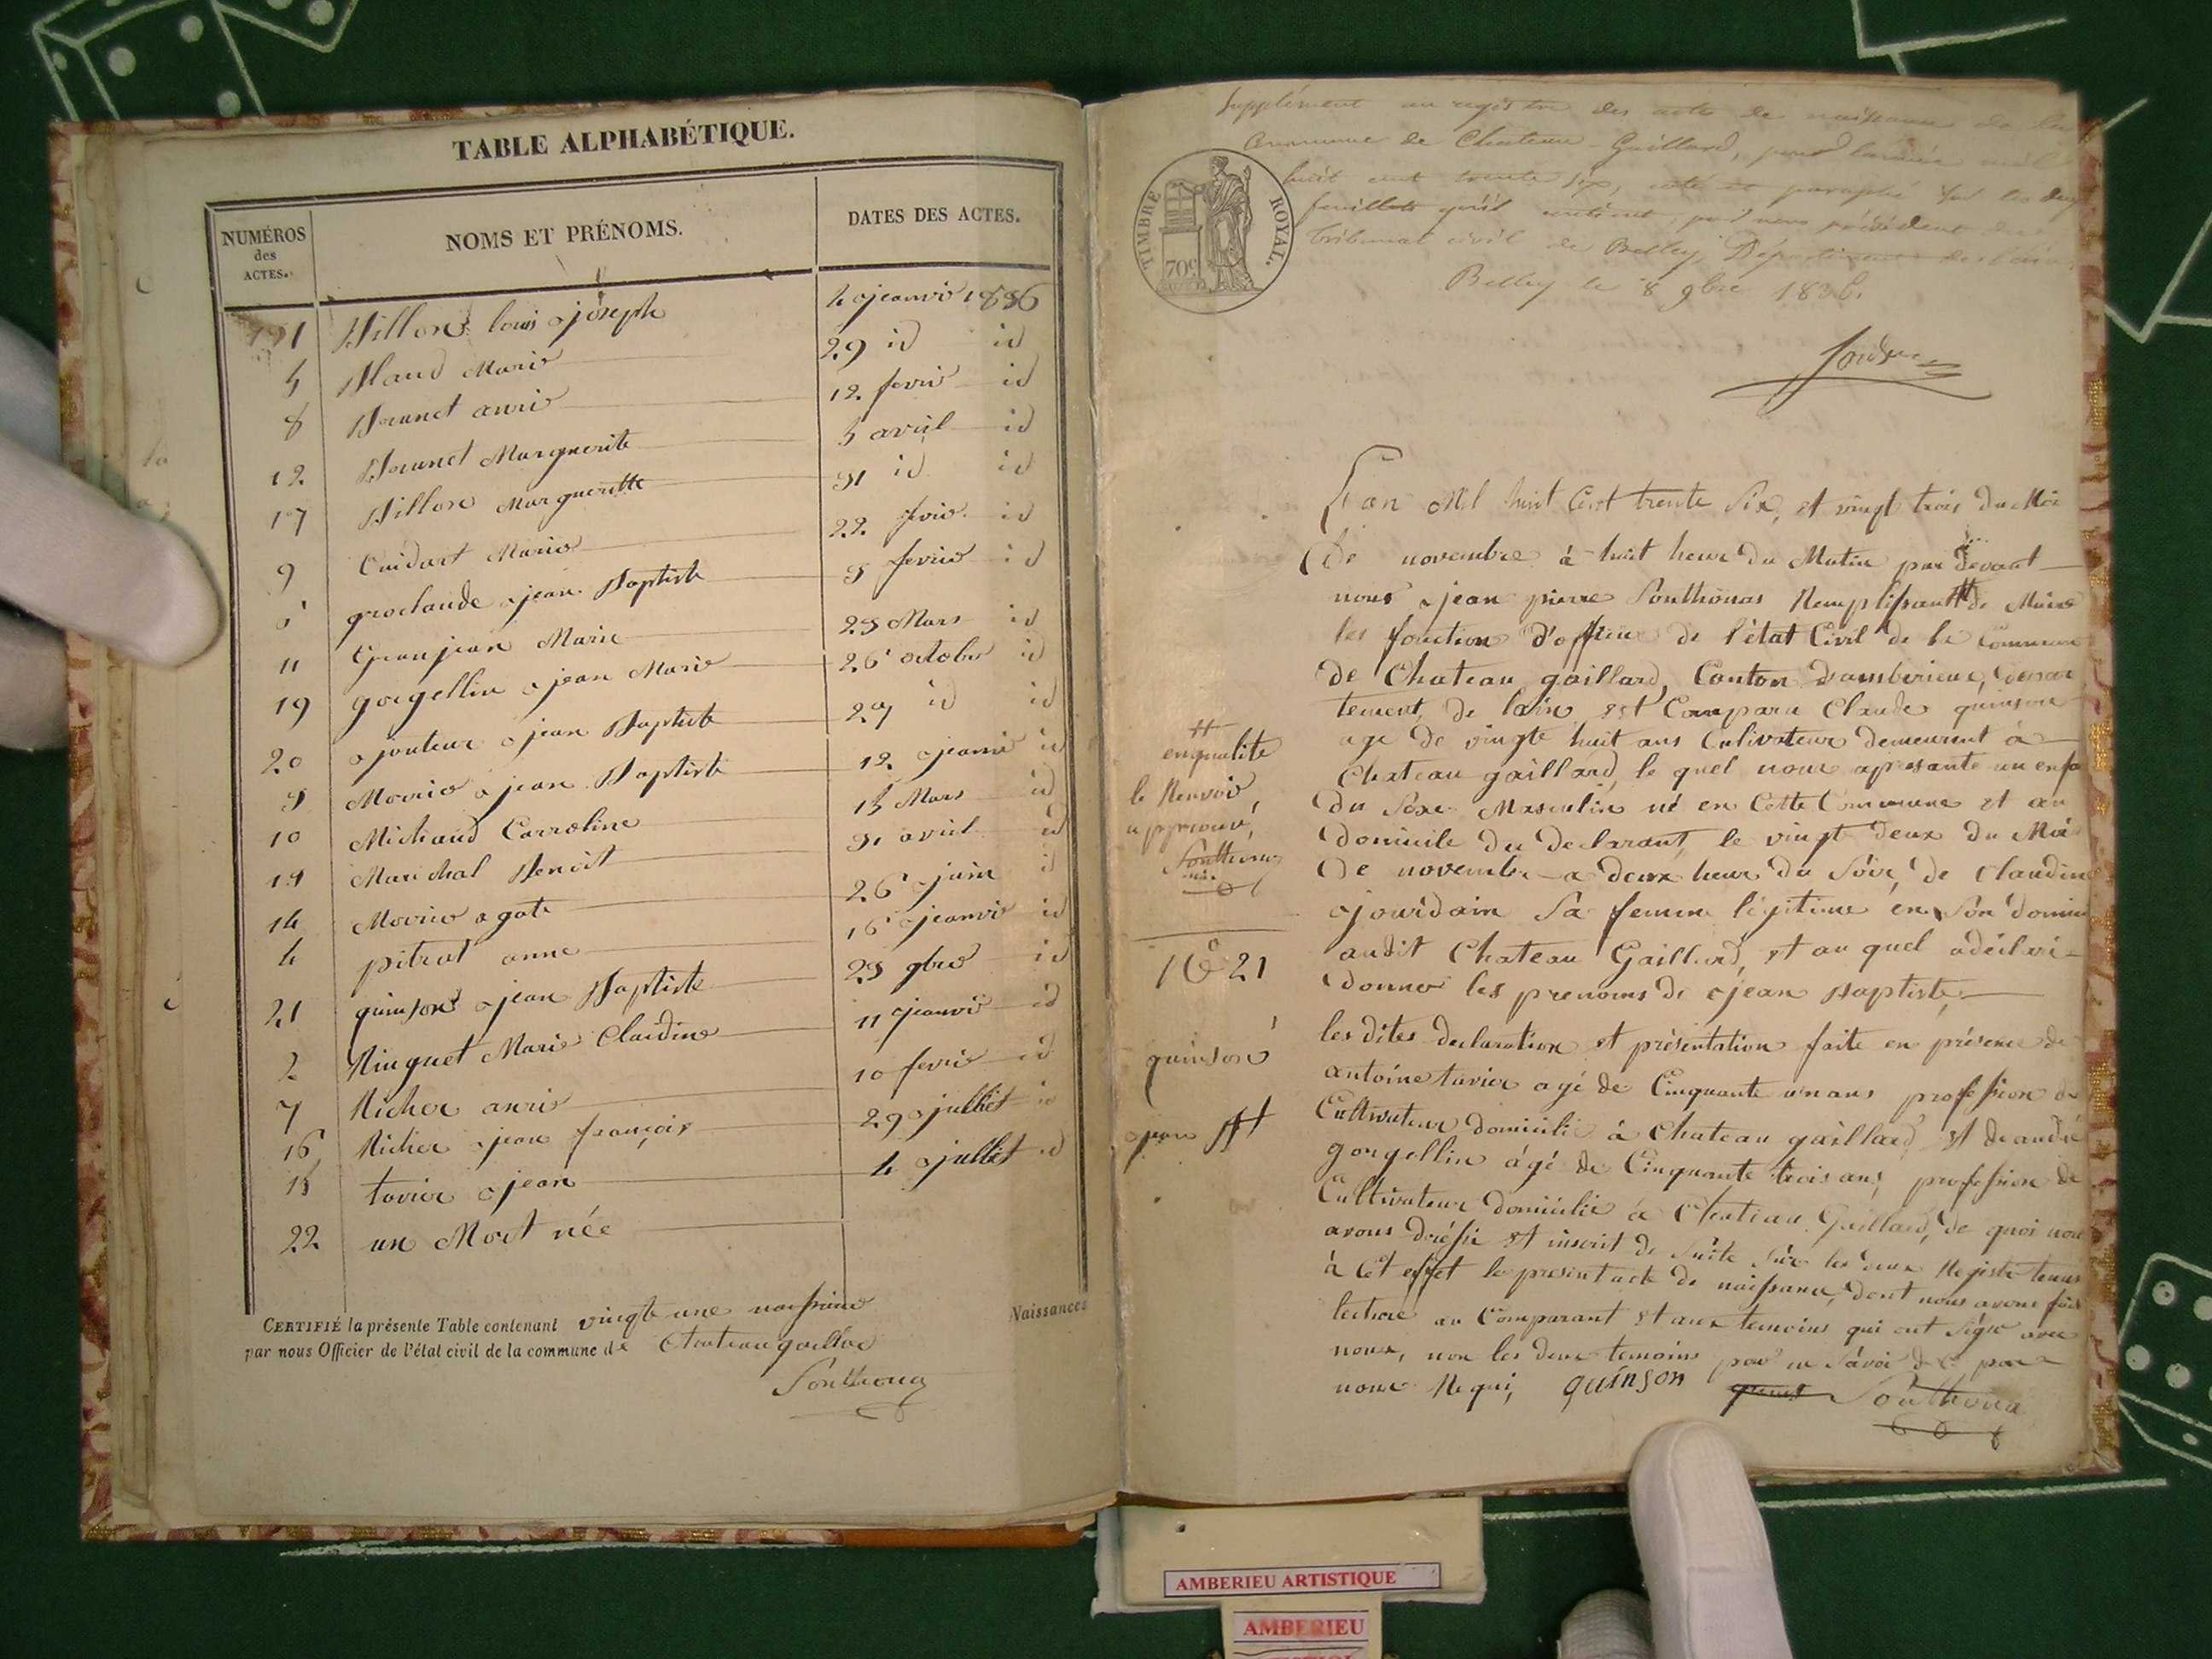 TABLE ALPHABÉTIQUE.
NUMÉROS des ACTES. NOMS ET PRÉNOMS. DATES DES ACTES.
1 Billon louis joseph 4 jeanvié 1836
5 Bland Marie 29 id id
8 Brunet anrie 12 fevrié id
12 Brunet Marguerite 5 avril id
17 Billon Margueritte 31 id id
9 Cuidart Marie 22 id
6 groclaude jean Baptiste 3 fevrié id
11 Granjean Marie 23 Mars id
19 gorgellin jean Marie 26 octobre id
20 jouteur jean Baptiste 27 id id
3 jean Baptiste 12 jeanvié id
10 Michaud Carroline 15 Mars id
13 Marichal Benoit avril id
14 agate 26 juin id
4 pitrat anne 16 jeanvié id
21 quinson jean Baptiste 23 9bre id
2 Ringuet Marie Claudine 11 jeanvié id
7 Richer anrie 10 fevrié id
16 Richer jean françois 29 julliet id
15 tavier jean 4 julliet id
22 un Mort née
CERTIFIÉ la présente Table contenant vingte une naissance Naissances
par nous Officier de l'état civil de la commune de Chateau gaillard
Ponthona
Supplément au registre des acte de naissance de la
Commune de Chateau-Gaillard, pour l'année mil
huit cent trente six, coté et paraphé sur les deux
feuillets qu'il contient, par nous président du
tribunal civil de Belley, Département de l'ain.
Belley le 8 9bre 1836.
TIMBRE ROYAL.
70c
L'an Mil huit Cent trente Six, et vingt trois du Moi
de novembre à huit heur du Matin par devant
nous jean pierre Ponthonas Remplissant # de Maire
les fonction d'officier de l'état Civil de la Commune
de Chateau gaillard, Canton d'amberieux, depar
tement de l'ain est Comparu Claude quinson
age de vingte huit ans Cultivateur demeurant à
Chateau gaillard, le quel nous apresante un enfa
du Sexe Masculin né en Cette Commune et au
domicile du declarant, le vingt deux du Moi
de novembre a deux heur du Soir, de Claudine
jourdain Sa femme légitime en Son domici
audit Chateau Gaillard, et au quel a déclaré
donner les prenoms de jean Baptiste,
les dites declaration et présentation faite en présence de
antoine tavier agé de Cinquante un ans profession de
Cultivateur domicilié à Chateau gaillard et de andré
gorgellin âgé de Cinquante trois ans, profession de
Cultivateur domicilié à Chateau Gaillard, de quoi nous
avons dréssé et inscrit de Suite Sur les deux Registe tenus
à cet effet le present acte de naissance, dont nous avons fait
lecture au Comparant et aux temoins qui ont Signé avec
nous, non les deux temoins pour ne Savoir de par
nous Requi, quinson Ponthona
#
enqualite
le Renvoir
approuvé,
Ponthona
N° 21
quinson
jean Bt
AMBERIEU ARTISTIQUE
AMBERIEU